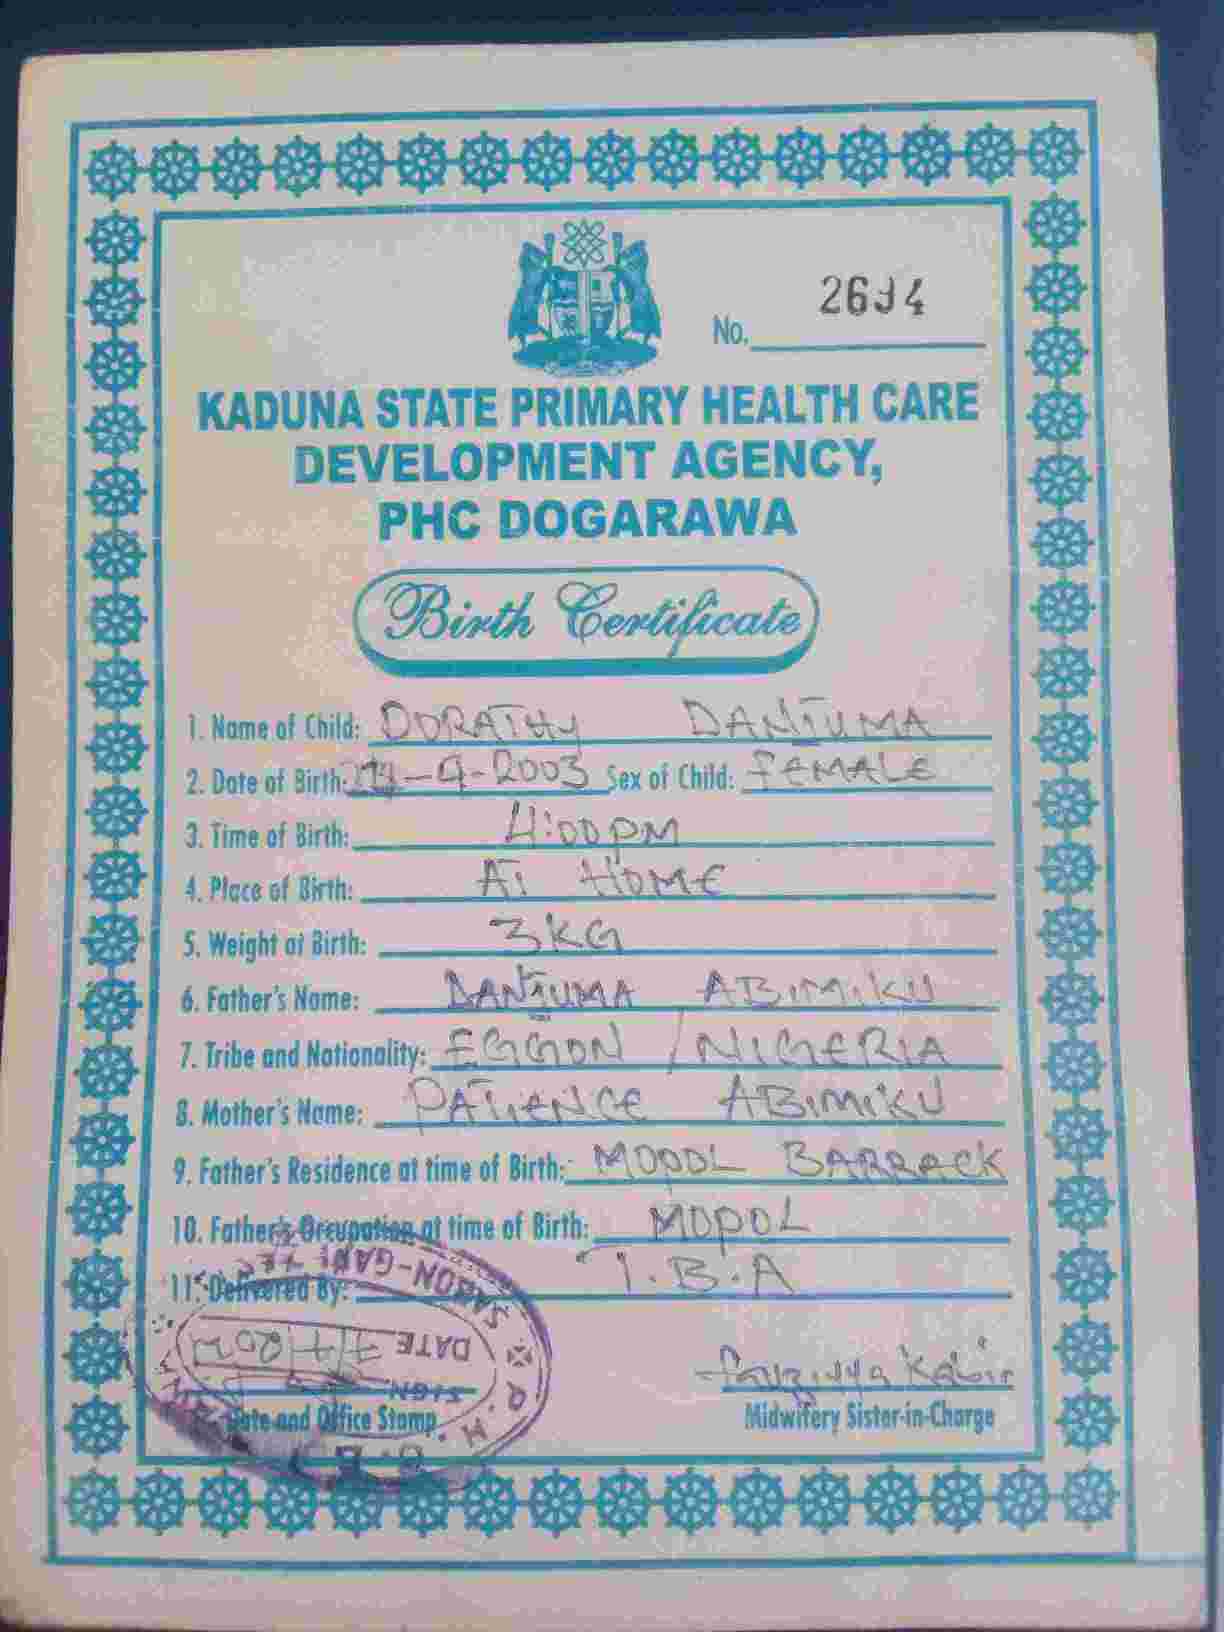 No. 2694
KADUNA STATE PRIMARY HEALTH CARE
DEVELOPMENT AGENCY,
PHC DOGARAWA
Birth Certificate
1. Name of Child: DORATHY DANJUMA
2. Date of Birth: -4-2003 Sex of Child: FEMALE
3. Time of Birth: 4:00PM
4. Place of Birth: AT HOME
5. Weight at Birth: 3KG
6. Father's Name: DANJUMA ABIMIKU
7. Tribe and Nationality: EGGON / NIGERIA
8. Mother's Name: PATIENCE ABIMIKU
9. Father's Residence at time of Birth: MOPOL BARRACK
10. Father's Occupation at time of Birth: MOPOL
11. Delivered By: T.B.A
SABON-GARI
DATE
SIGN
Date and Office Stamp
Fauziyya Kabir
Midwifery Sister-in-Charge